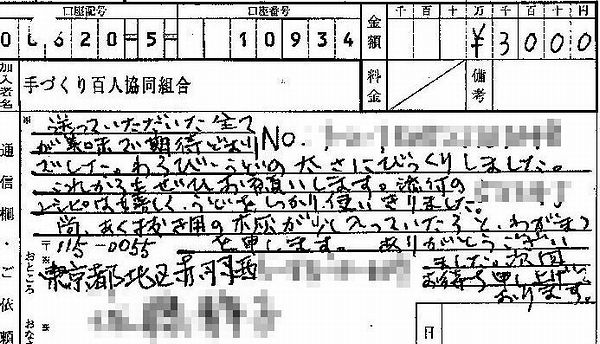 口座記号 口座番号 金額 千 百 十 万 千 百 十 円
00620-5- 10934 ¥3000
加入者名 手づくり百人協同組合 料金 備考
通信欄・ご依頼
※
送っていただいた全て
が美味で期待どおり No.
でした。わらび・うどの太さにびっくりしました。
これからもぜひお願いします。添付の
レシピは嬉しく、うどをしっかり使いきりました。
尚、あく抜き用の木灰が少し入っていたらと、わがまま
〒115-0055 を申します。ありがとうござい
おところ 東京都北区赤羽西 ました。次回
お待ち申し上げて
おります。
おな
※
日